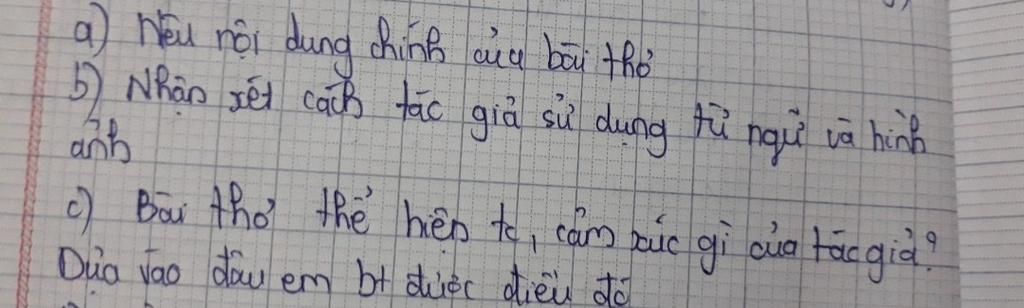 a) Nêu nội dung chính của bài thơ
b) Nhận xét cách tác giả sử dụng từ ngữ và hình
ảnh
c) Bài thơ thể hiện tc, cảm xúc gì của tác giả?
Dựa vào đâu em bt được điều đó